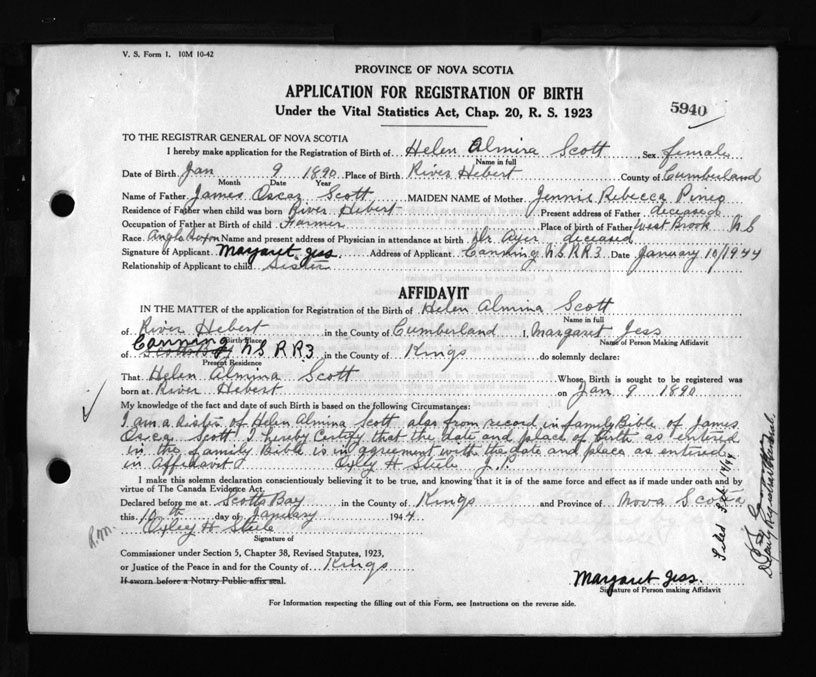 V. S. Form 1. 10M 10-42
PROVINCE OF NOVA SCOTIA
APPLICATION FOR REGISTRATION OF BIRTH
Under the Vital Statistics Act, Chap. 20, R. S. 1923
5940
TO THE REGISTRAR GENERAL OF NOVA SCOTIA
I hereby make application for the Registration of Birth of Helen Almira Scott Sex female
Name in full
Date of Birth Jan 9 1890 Place of Birth River Hebert County of Cumberland
Month Date Year
Name of Father James Oscar Scott MAIDEN NAME of Mother Jennie Rebecca Pineo
Residence of Father when child was born River Hebert Present address of Father deceased
Occupation of Father at Birth of child Farmer Place of birth of Father West Brook N S
Race Anglo Saxon Name and present address of Physician in attendance at birth Dr Ayer deceased
Signature of Applicant Margaret Jess. Address of Applicant Canning N.S. R R 3. Date January 10/1944
Relationship of Applicant to child Sister
AFFIDAVIT
IN THE MATTER of the application for Registration of the Birth of Helen Almina Scott
Name in full
of River Hebert in the County of Cumberland I, Margaret Jess
Birth Place Name of Person Making Affidavit
of Canning N S R R 3 in the County of Kings do solemnly declare:
Present Residence
That Helen Almina Scott Whose Birth is sought to be registered was
born at River Hebert on Jan 9 1890
My knowledge of the fact and date of such Birth is based on the following Circumstances:
I am a Sister of Helen Almina Scott also from record in family Bible of James
Oscar Scott. I hereby Certify that the date and place of birth as entered
in the family Bible is in agreement with the date and place as entered
in Affidavit Oxley H Steele J.P.
I make this solemn declaration conscientiously believing it to be true, and knowing that it is of the same force and effect as if made under oath and by
virtue of The Canada Evidence Act.
Declared before me at Scotts Bay in the County of Kings and Province of Nova Scotia
this 10th day of January 1944
Oxley H Steele
Signature of
R.M.
Commissioner under Section 5, Chapter 38, Revised Statutes, 1923,
or Justice of the Peace in and for the County of Kings
If sworn before a Notary Public affix seal.
Margaret Jess.
Signature of Person making Affidavit
For Information respecting the filling out of this Form, see Instructions on the reverse side.
Filed Feb. 14/44
Deputy Registrar General.